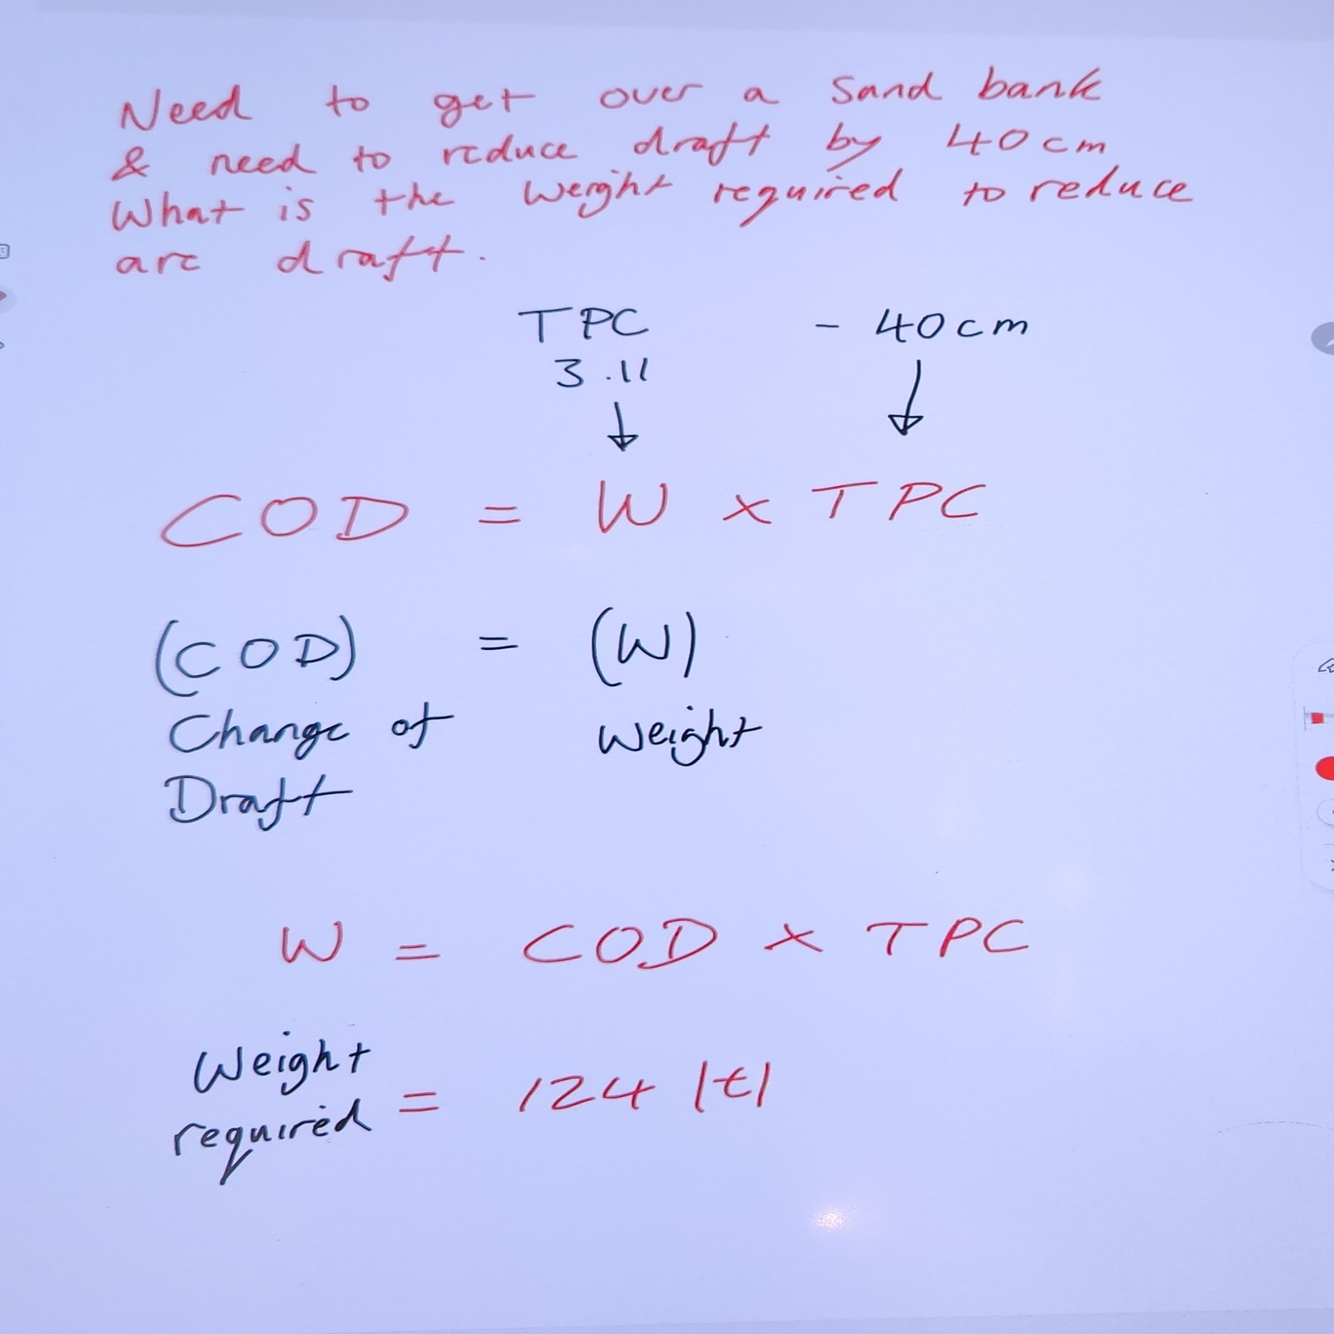 Need to get over a Sand bank
& need to reduce draft by 40cm
What is the weight required to reduce
are draft.
TPC - 40cm
3.11
COD = W x TPC
(COD) = (W)
Change of Weight
Draft
W = COD x TPC
Weight
required = 124 |t|